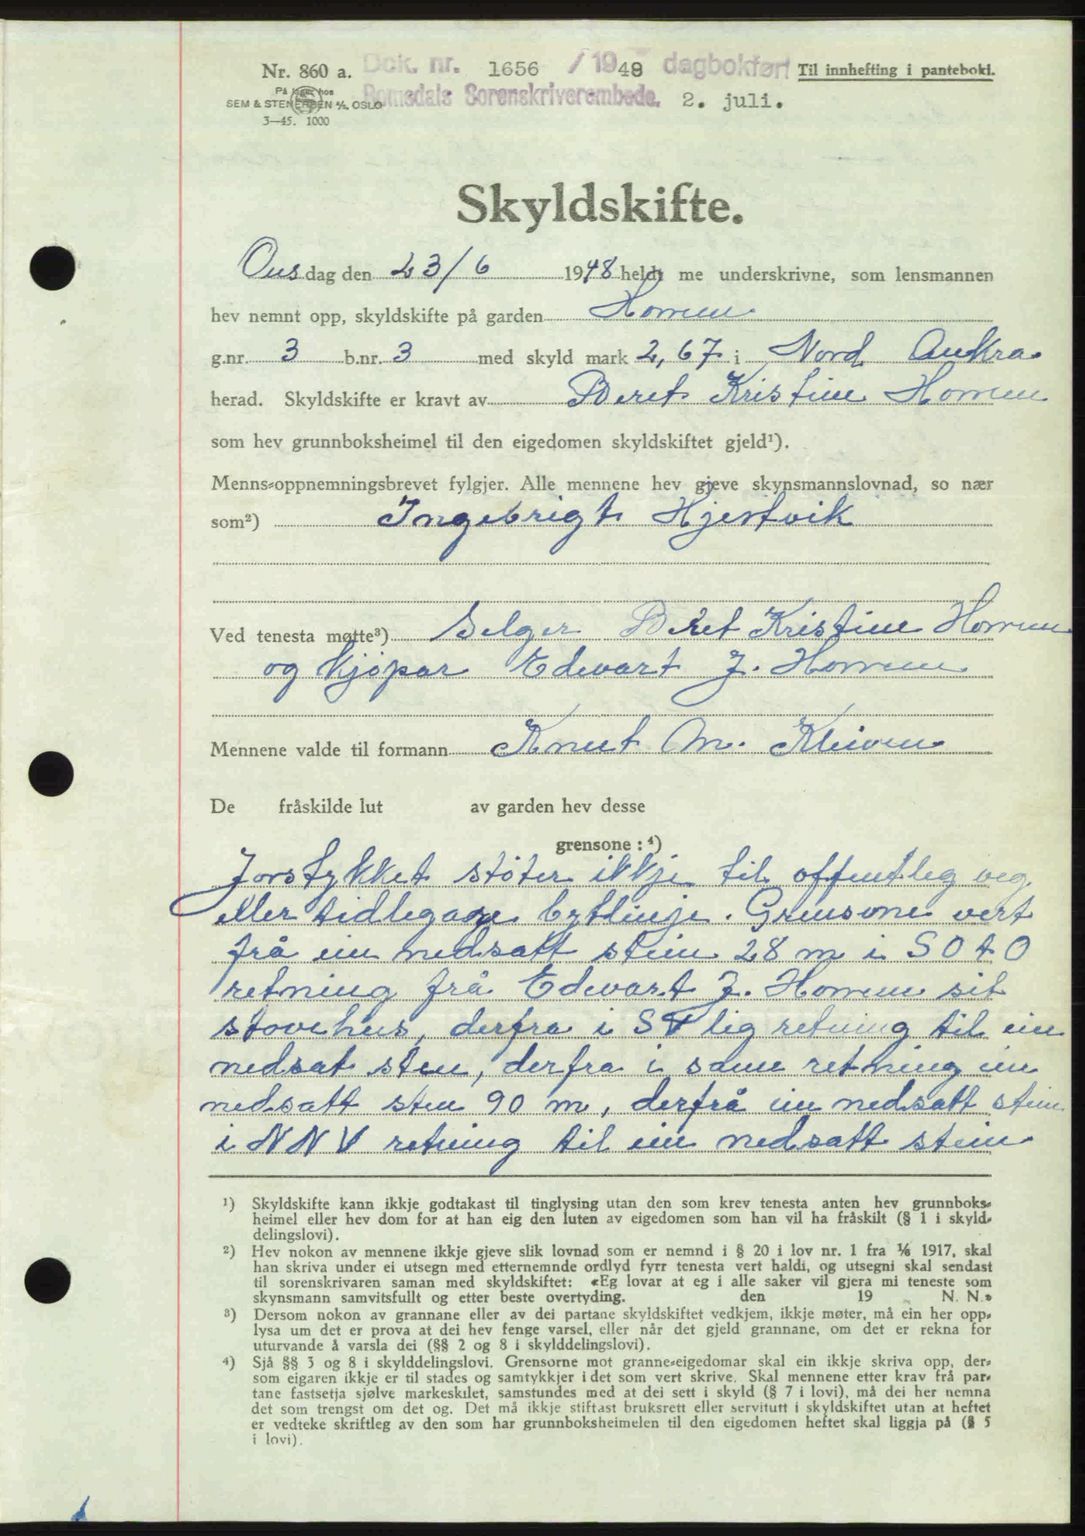 Nr. 860 a.
Dok. nr. 1656 / 1948 dagbokført
Til innhefting i panteboki.
På lager hos
SEM & STENERSEN A/S, OSLO
3—45. 1000
Romsdals Sorenskriverembede. 2. juli.
Skyldskifte.
Onsdag den 23/6 1948 heldt me underskrivne, som lensmannen
hev nemnt opp, skyldskifte på garden Horrem
g.nr. 3 b.nr. 3 med skyld mark 2,67 i Nord Aukra
herad. Skyldskifte er kravt av Beret Kristine Horrem
som hev grunnboksheimel til den eigedomen skyldskiftet gjeld¹).
Menns-oppnemningsbrevet fylgjer. Alle mennene hev gjeve skynsmannslovnad, so nær
som²) Ingebrigt Hjertvik
Ved tenesta møtte³) Selger Beret Kristine Horrem
og kjøpar Edvart J. Horrem
Mennene valde til formann Knut M. Kleiven
De fråskilde lut av garden hev desse
grensone: ⁴)
Jorstykket støter ikkje til offentleg veg
eller tidlegare bytlinje. Grensone vert
frå ein nedsatt stein 28 m i S O t O
retning frå Edvart J. Horrem sit
stovehus, derfra i S V lig retning til ein
nedsat sten, derfra i same retning ein
nedsatt sten 90 m, derfrå ein nedsatt stein
i N N V retning til ein nedsatt stein
¹) Skyldskifte kann ikkje godtakast til tinglysing utan den som krev tenesta anten hev grunnboks-
heimel eller hev dom for at han eig den luten av eigedomen som han vil ha fråskilt (§ 1 i skyld-
delingslovi).
²) Hev nokon av mennene ikkje gjeve slik lovnad som er nemnd i § 20 i lov nr. 1 fra 1/6 1917, skal
han skriva under ei utsegn med etternemnde ordlyd fyrr tenesta vert haldi, og utsegni skal sendast
til sorenskrivaren saman med skyldskiftet: «Eg lovar at eg i alle saker vil gjera mi teneste som
skynsmann samvitsfullt og etter beste overtyding. den 19 N. N.»
³) Dersom nokon av grannane eller av dei partane skyldskiftet vedkjem, ikkje møter, må ein her opp-
lysa um det er prova at dei hev fenge varsel, eller når det gjeld grannane, om det er rekna for
uturvande å varsla dei (§§ 2 og 8 i skylddelingslovi).
⁴) Sjå §§ 3 og 8 i skylddelingslovi. Grensorne mot granne-eigedomar skal ein ikkje skriva opp, der-
som eigaren ikkje er til stades og samtykkjer i det som vert skrive. Skal mennene etter krav frå par-
tane fastsetja sjølve markeskilet, samstundes med at dei sett i skyld (§ 7 i lovi), må dei her nemna
det som trengst om det og. Det må ikkje stiftast bruksrett eller servitutt i skyldskiftet utan at heftet
er vedteke skriftleg av den som har grunnboksheimelen til den eigedomen heftet skal liggja på (§ 5
i lovi).